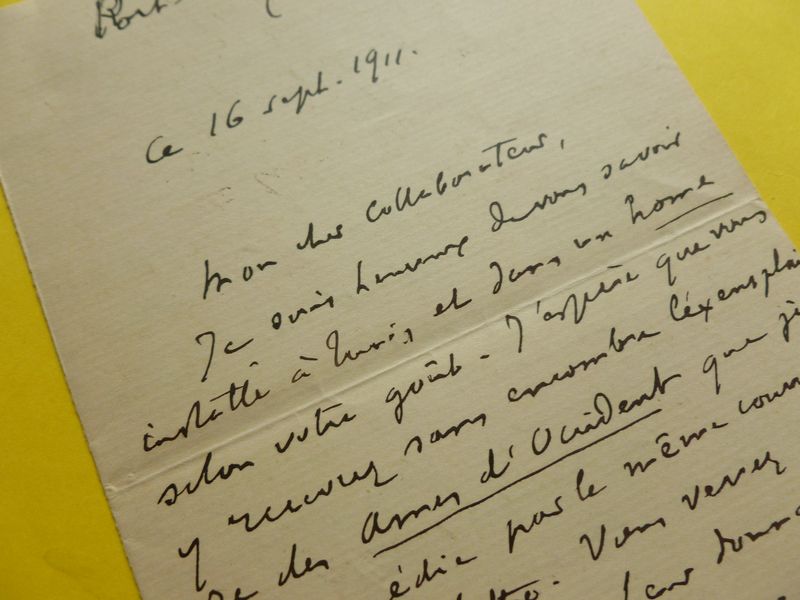 Ce 16 sept. 1911.
Mon cher collaborateur,
Je suis heureux de vous savoir
installé à Tunis et dans un home
selon votre goût. J'espère que vous
y recevrez sans encombre l'exemplai
des Ames d'Occident que j'
édie par le même cour
Vous verrez